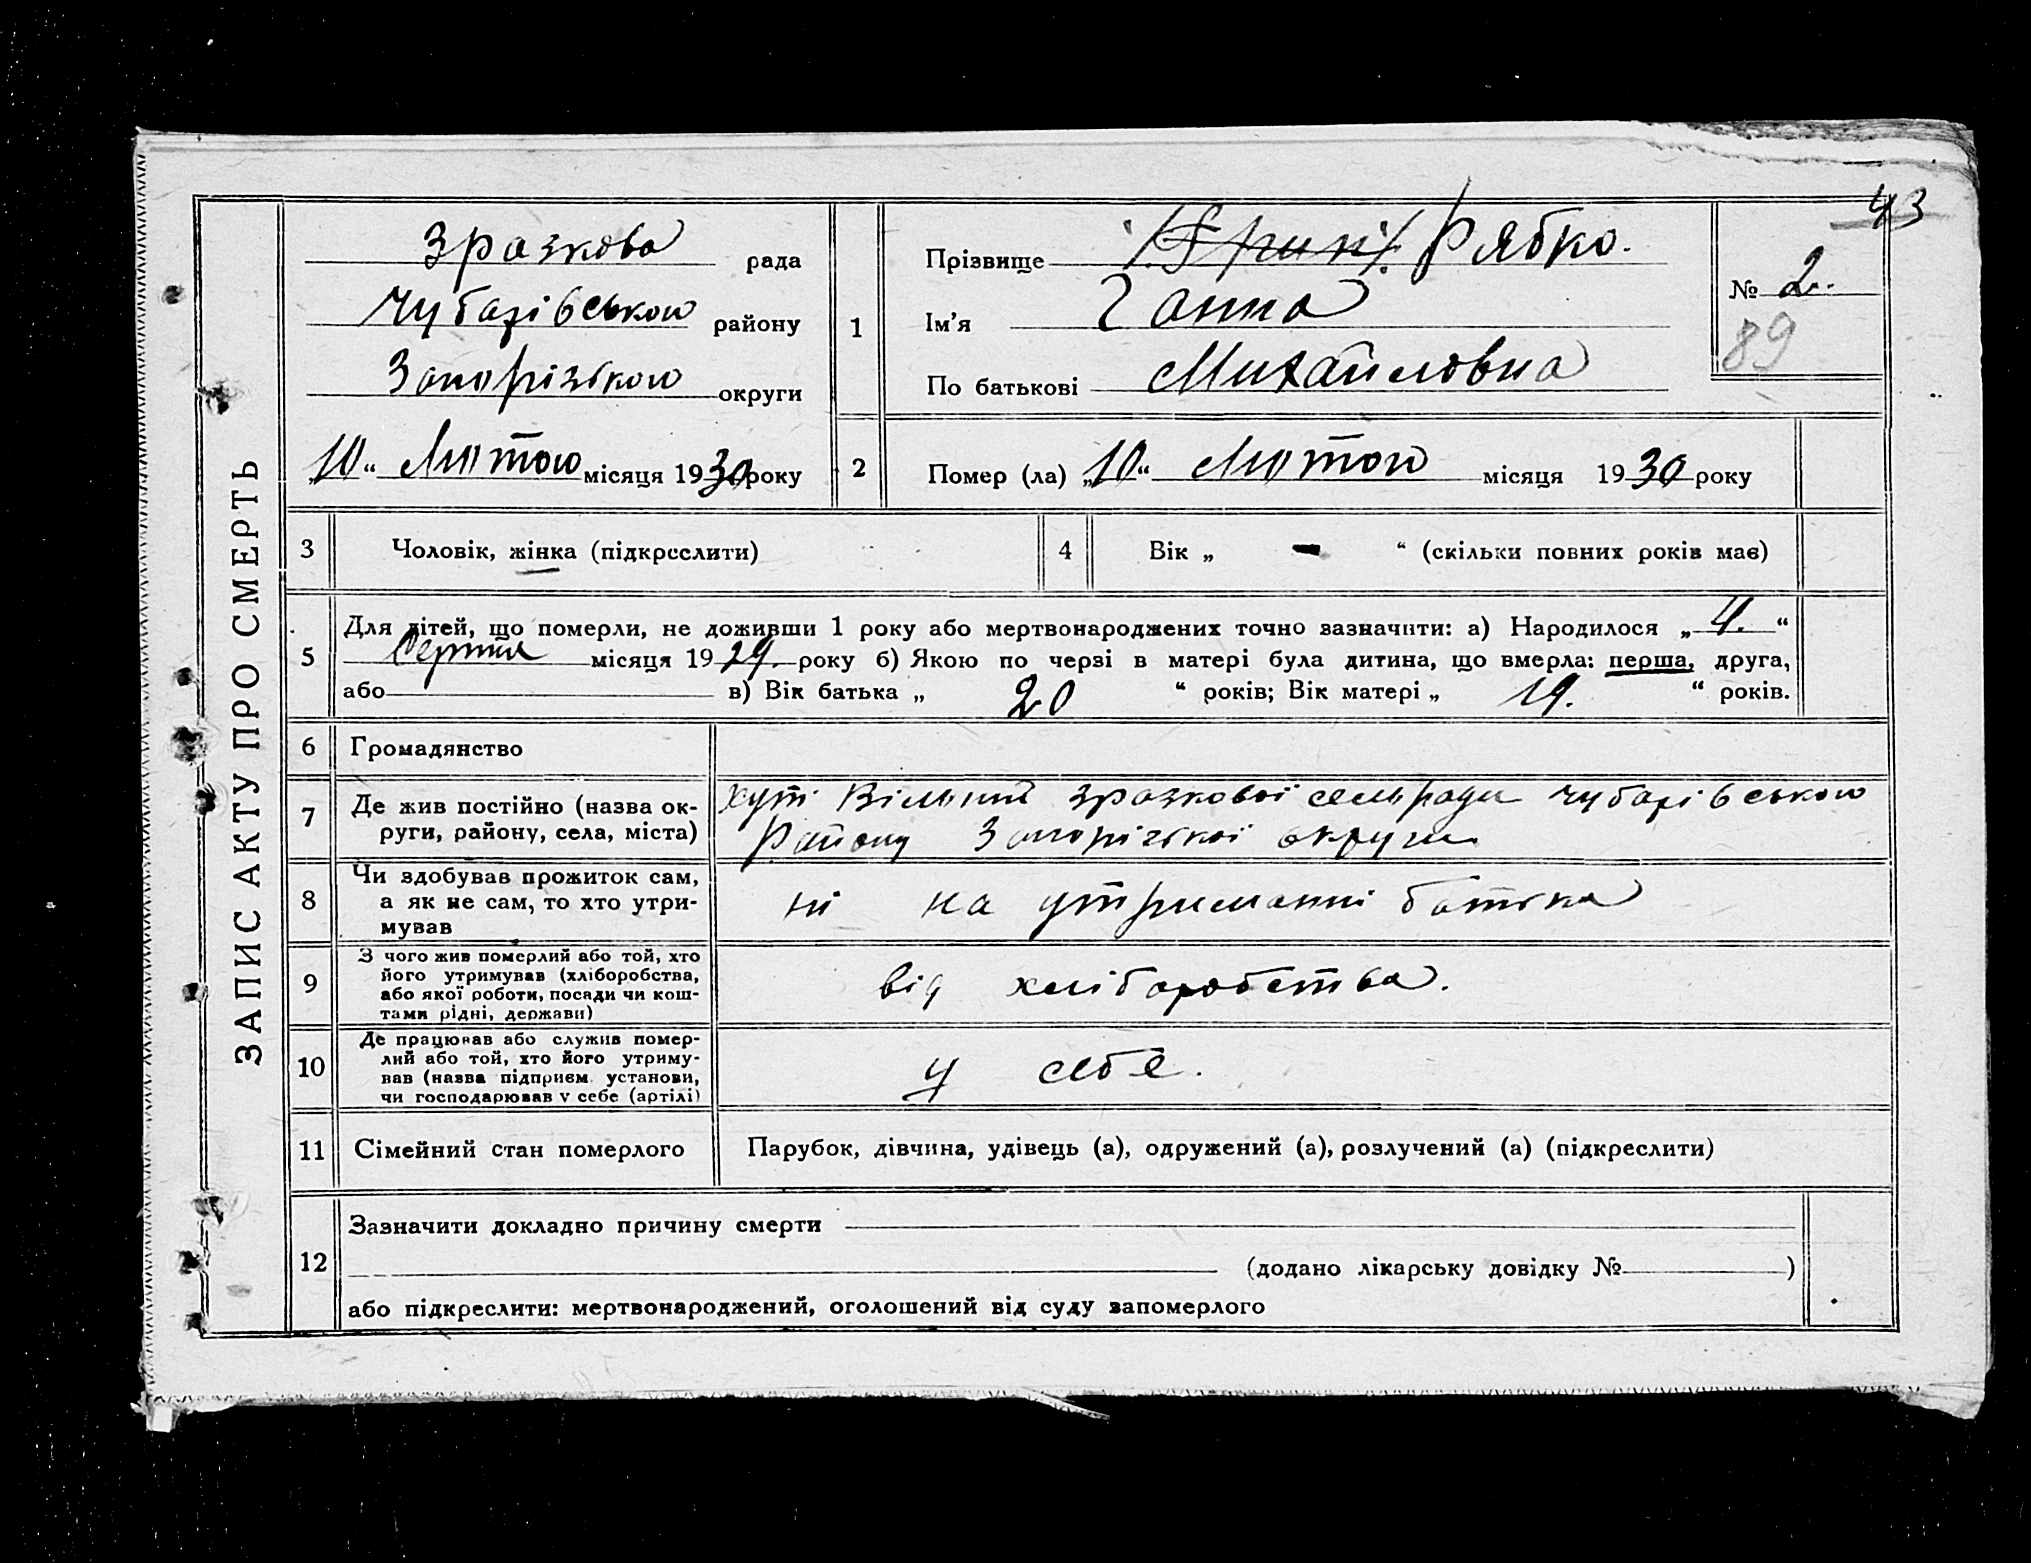 43
ЗАПИС АКТУ ПРО СМЕРТЬ
Зразкова рада
Чубарівського району
Запорізького округи
„10“ Лютого місяця 1930 року
1
Прізвище Рябко.
Ім’я Ганна
По батькові Михайловна
№ 2.
89
2 Помер (ла) „10“ Лютого місяця 1930 року
3 Чоловік, жінка (підкреслити)
4 Вік „ - “ (скільки повних років має)
5 Для дітей, що померли, не доживши 1 року або мертвонароджених точно зазначити: а) Народилося „4.“
Серпня місяця 1929. року б) Якою по черзі в матері була дитина, що вмерла: перша, друга,
або в) Вік батька „ 20 “ років; Вік матері „ 19. “ років.
6 Громадянство
7 Де жив постійно (назва ок-
руги, району, села, міста)
хут Вільний Зразкової сельради Чубарівського
Району Запорізької округи.
8 Чи здобував прожиток сам,
а як не сам, то хто утри-
мував
ні на утриманні батька
9 З чого жив померлий або той, хто
його утримував (хліборобства,
або якої роботи, посади чи кош-
тами рідні, держави)
від хліборобства.
10 Де працював або служив помер-
лий або той, хто його утриму-
вав (назва підприєм. установи,
чи господарював у себе (артілі)
у себе.
11 Сімейний стан померлого
Парубок, дівчина, удівець (а), одружений (а), розлучений (а) (підкреслити)
12 Зазначити докладно причину смерти
(додано лікарську довідку № )
або підкреслити: мертвонароджений, оголошений від суду запомерлого